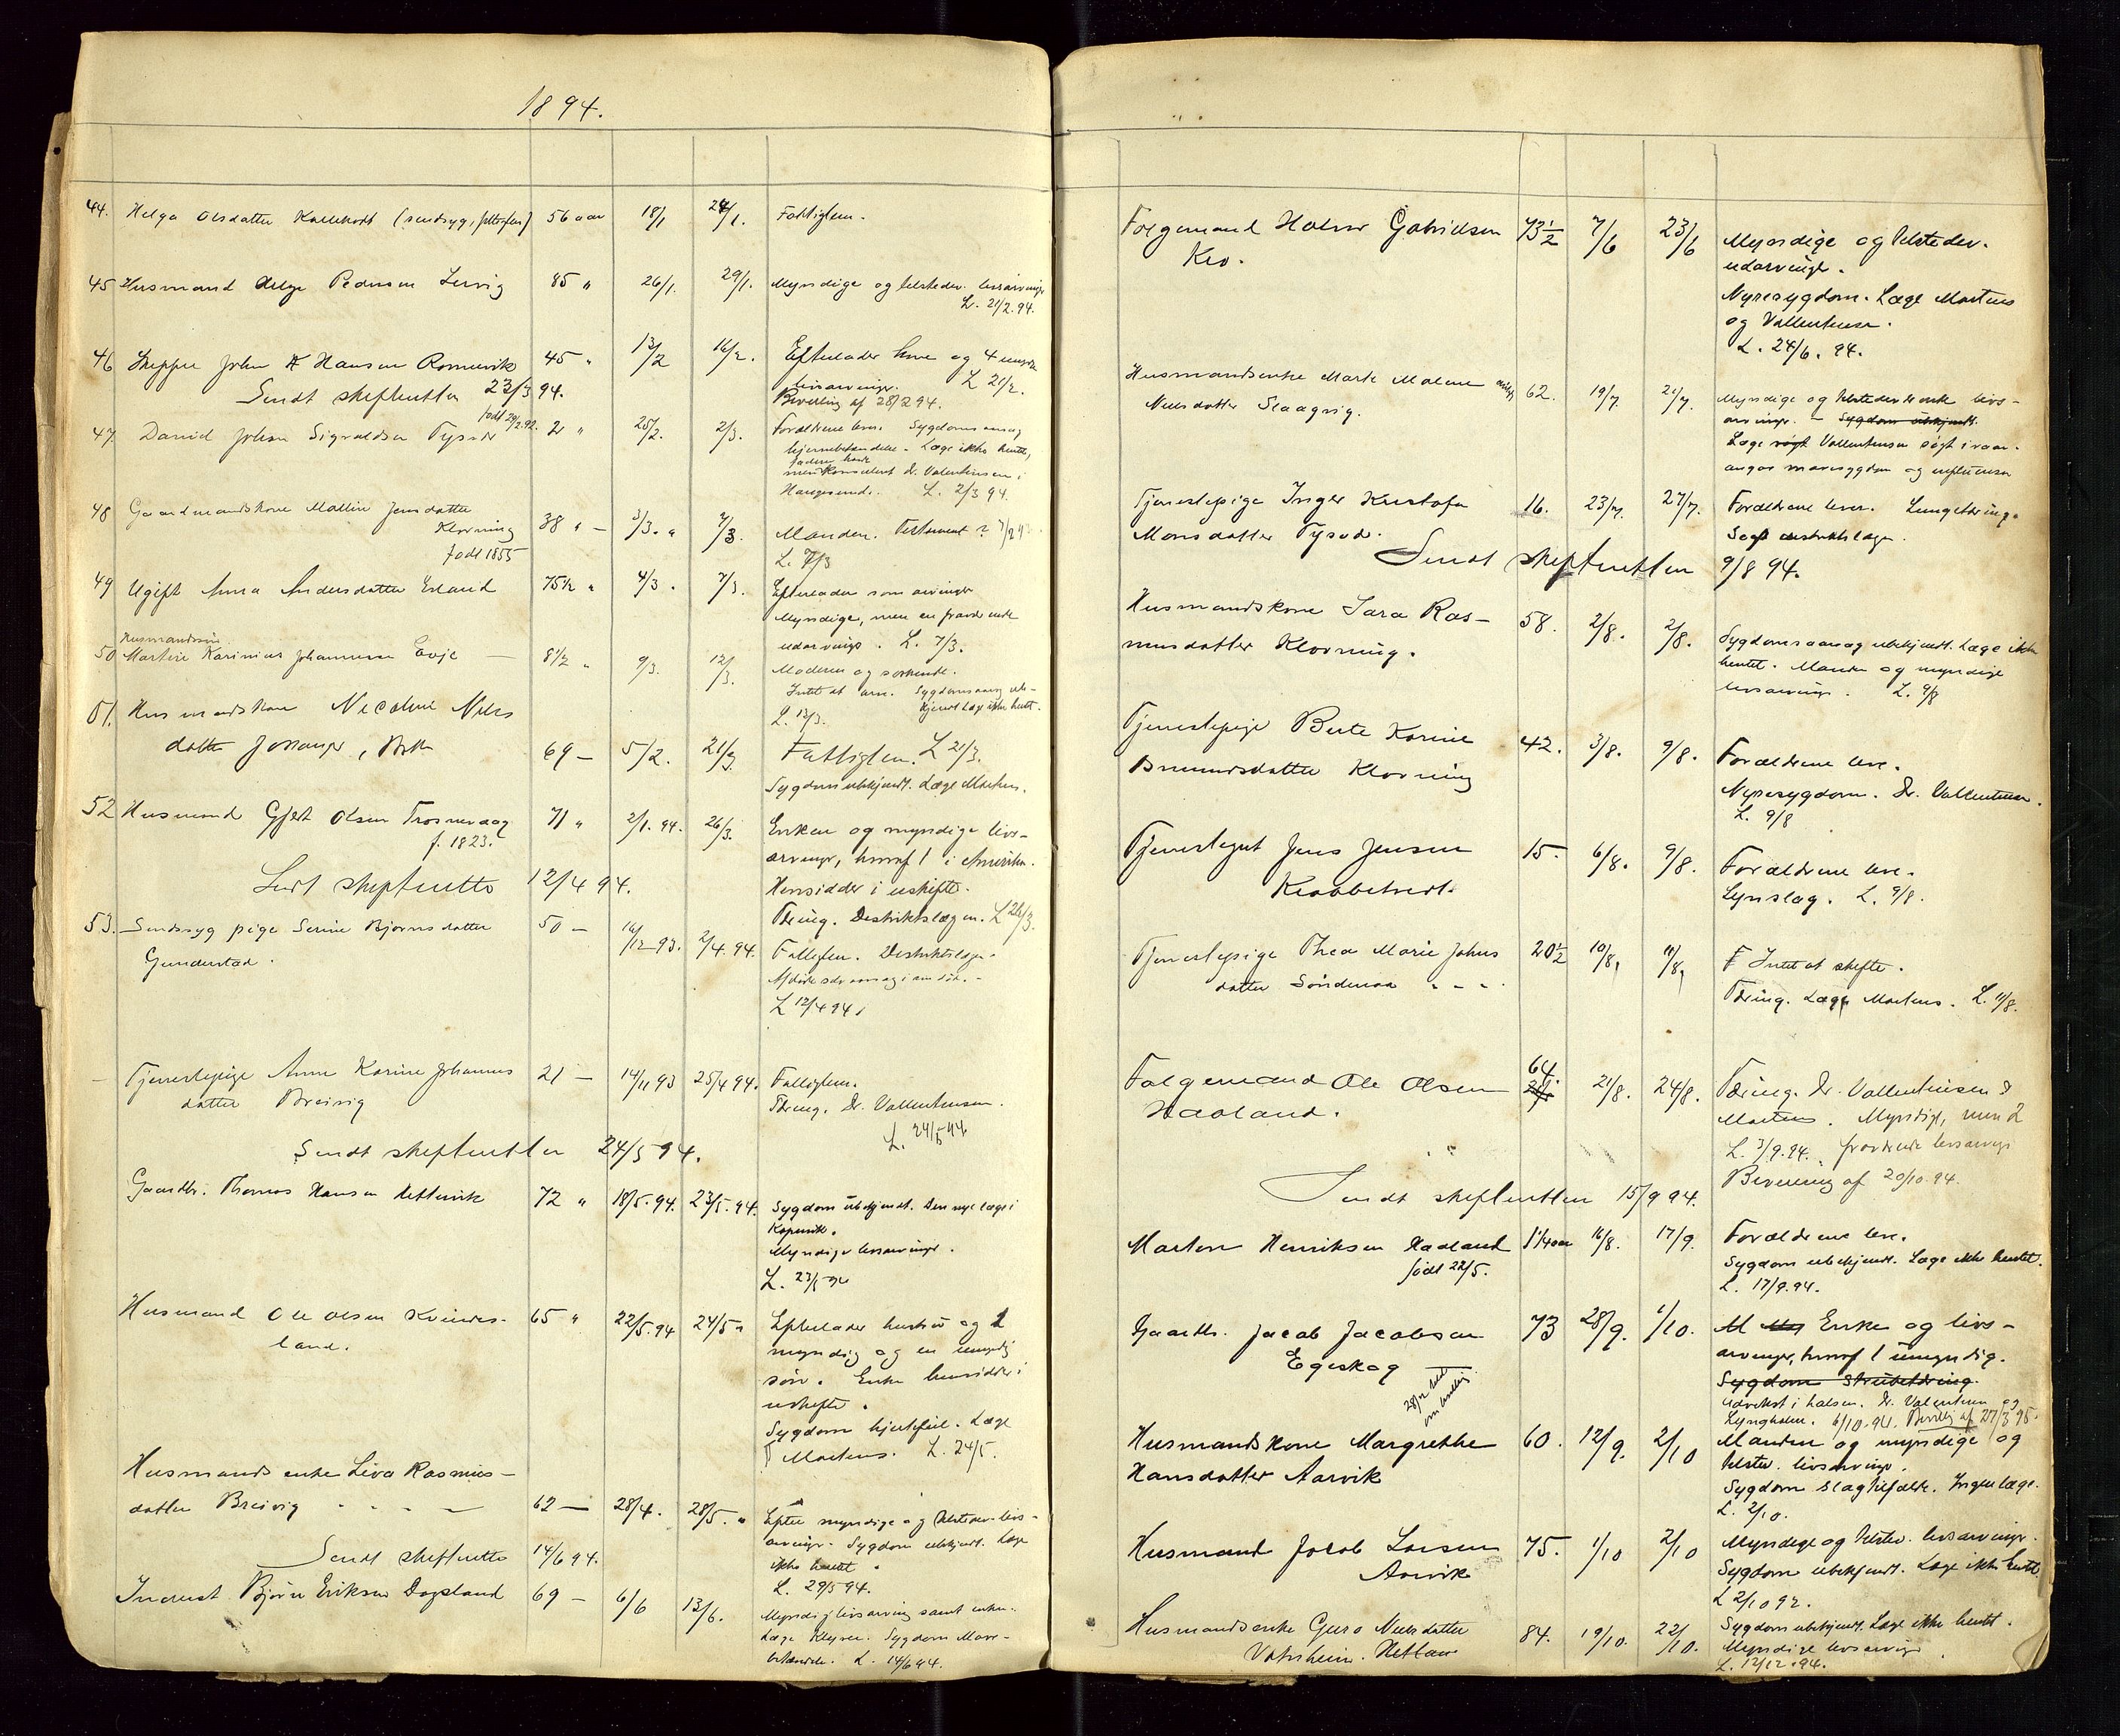 1894.
44. Helga Olsdatter Kallekodt (sindsyg, 56 aar 18/1 24/1. Fattiglem.
45 Husmand Helge Pedersen Lervig 85 " 26/1. 29/1. Myndige og tilstedev. livsarvinger
L. 21/2. 94.
46 Skipper John H Hansen Romervik 45 " 13/2 16/2. Efterlader kone og 4 umynd.
livsarvinger. L 21/2.
Sendt skifteretten 23/3 94.
Bevilling af 28/2 94.
født 29/2.92.
47. David Johan Sigvaldsen Tysvær 2 " 25/2. 2/3. Forældrene lever. Sygdomsaarsag
hjernebetændelse. Læge ikke hentet,
faderen havde
men konsuleret Dr. Valentinsen i
Haugesund. L. 2/3 94.
48 Gaardmandskone Malline Jensdatter
Klovning 38 " - 3/3. " 7/3. Manden. Testament?
født 1855
L. 7/3
49 Ugift Anna Andersdatter Erland 75 1/2 " 4/3 . 7/3. Efterlader som arvinger
Myndige, men en fraværende
udarving. L. 7/3.
Husmandssøn
50 Martin Karinius Johannesen Evje - 8 1/2 " 9/3. 12/3. Moderen og søskende.
Intet at arve. Sygdomsaarsag ube-
kjendt Læge ikke hentet.
L. 12/3.
51. Husmandskone Nicoline Niels
datter Jossanger, 69 - 5/2. 21/3. Fattiglem. L 21/3.
Sygdom ubekjendt. Læge Martens.
52 Husmand Gjert Olsen Trosnavaag 71 " 2/1. 94. 26/3. Enken og myndige livs-
f. 1823.
arvinger, hvoraf 1 i Amerika.
Sendt skifteretten 12/4 94.
Hensidder i uskifte.
Tæring. Distriktslægen. L 26/3.
53. Sindssyg pige Serine Bjørnsdatter 50 - 16/12 93. 2/4. 94. Fattiglem. Distriktslægen.
Gunderstad.
L 12/4 94.
Tjenestepige Anne Karine Johannes 21 - 14/11 93 25/4 94. Fattiglem.
datter Breivig
Tæring. Dr. Vallentinsen.
L. 24/5 94.
Sendt skifteretten 24/5 94.
Gaardbr. Thomas Hansen Hettervik 72 " 18/5. 94. 23/5. 94. Sygdom ubekjendt. Den nye læge i
Kopervik.
Myndige livsarvinger.
L. 23/5 94
Husmand Ole Olsen Kvindes- 65 " 22/5. 94 24/5 " Efterlader hustru og 1
land.
myndig og en umyndig
søn. Enken hensidder i
uskifte.
Sygdom hjertefeil. Læge
Martens. L. 24/5.
Husmandsenke Liva Rasmus-
datter Breivig 62 - 28/4. 28/5. " Efter myndige og tilstedev. livs-
arvinger. Sygdom ubekjendt. Læge
ikke hentet.
Sendt skifteretten 14/6 94.
L. 29/5 94.
Inderst Bjørn Eriksen Dogsland 69 - 6/6 13/6. Myndig livsarving samt enken.
Læge Kleyser. Sygdom Mave-
betændelse. L. 14/6 94.
Folgemand Halvor Gabrielsen 73 1/2 7/6 23/6 Myndige og tilstedev.
Kro.
udarvinger.
Nyresygdom. Læge Martens
og Vallentinsen.
L. 24/6. 94.
Husmandsenke Marte Malene 62. 19/7. 21/7. Myndige og tilstedeværende livs-
Nielsdatter Slaagvig.
arvinger. - Sygdom ubekjendt.
Læge søgt Vallentinsen søgt i vaar
angav mavesygdom og influensa
Tjenestepige Inger Kristofa 16. 23/7. 27/7. Forældrene lever. Lungetæring.
Monsdatter Tysvær.
Søgt distriktslægen.
Sendt skifteretten 9/8 94.
Husmandskone Sara Ras- 58. 2/8. 2/8. Sygdomsaarsag ubekjendt. Læge ikke
musdatter Klovning.
hentet. Manden og myndige
livsarvinger. L. 9/8
Tjenestepige Berte Karine 42. 3/8. 9/8. Forældrene leve.
Amundsdatter Klovning
Nyresygdom. Dr. Vallentinsen.
L. 9/8
Tjenestegut Jens Jensen 15. 6/8. 9/8. Forældrene leve.
Krabbetvedt.
Lynslag. L. 9/8.
Tjenestepige Thea Marie Johns 20 1/2 10/8. 11/8. F Intet at skifte.
datter Sønderaa
Tæring. Læge Martens. L. 11/8.
Folgemand Ole Olsen 64. 21/8. 24/8. Tæring. Dr. Vallentinsen &
Haaland.
Martens. Myndige, men 2
L. 3/9. 94. fraværende livsarvinger
Bevilling af 20/10. 94.
Sendt skifteretten 15/9 94.
Marton Henriksen Haaland 1 1/4 aar 16/8. 17/9. Forældrene leve.
født 22/5.
Sygdom ubekjendt. Læge ikke hentet.
L. 17/9. 94.
Gaardbr. Jacob Jacobsen 73 28/9. 1/10. M Enke og livs-
Egeskog
arvinger, hvoraf 1 umyndig.
Sygdom Strubetæring.
udvekst i halsen. Dr. Valentinsen og
Lyngholm. 6/10. 94. Bevillg af 27/3 95.
Husmandskone Margrethe 60. 12/9. 2/10 Manden og myndige og
Hansdatter Aarvik
tilstedev. livsarvinger.
Sygdom slagtilfælde. Ingen læge.
L. 2/10.
Husmand Jacob Larsen 75. 1/10 2/10 Myndige og tilstedev. livsarvinger.
Aarvik
Sygdom ubekjendt. Læge ikke hentet.
L 2/10 92.
Husmandsenke Guro Nielsdatter 84. 19/10. 22/10. Sygdom ubekjendt. Læge ikke hentet.
Vatsheim. Hetland
Myndige livsarvinger
L. 12/12. 94.